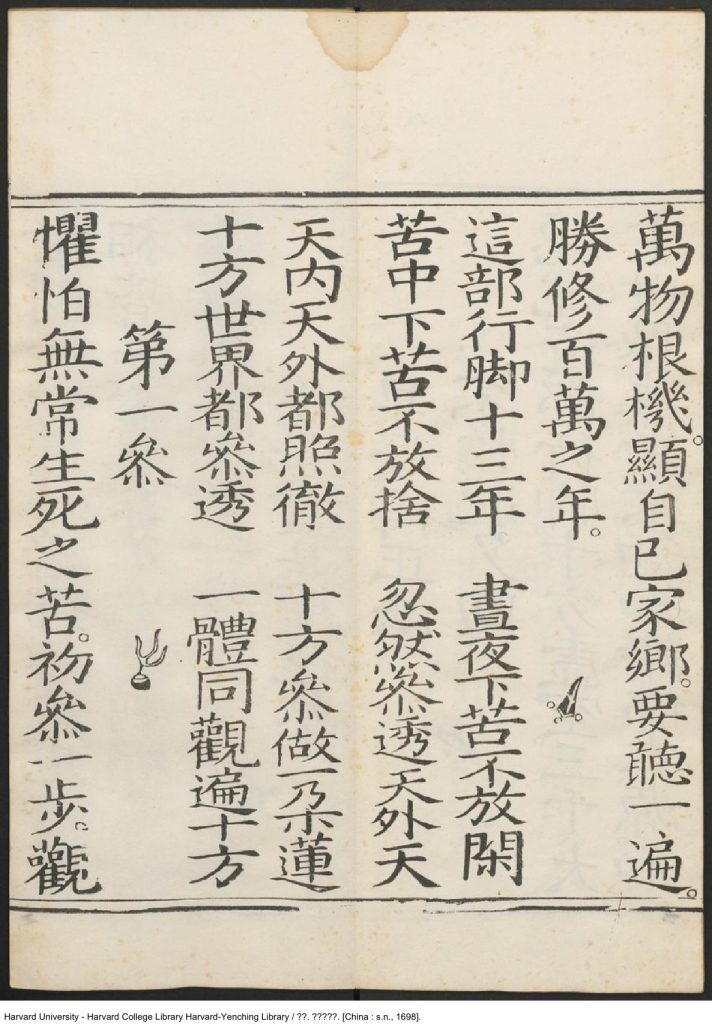 萬物根機。顯自已家鄉。要聽一遍。
勝修百萬之年。
這部行脚十三年 晝夜下苦不放閑
苦中下苦不放捨 忽然叅透天外天
天内天外都照徹 十方叅做一朶蓮
十方世界都叅透 一體同觀遍十方
第一叅
懼怕無常生死之苦。初叅一步。觀
Harvard University - Harvard College Library Harvard-Yenching Library / ??. ?????. [China : s.n., 1698].